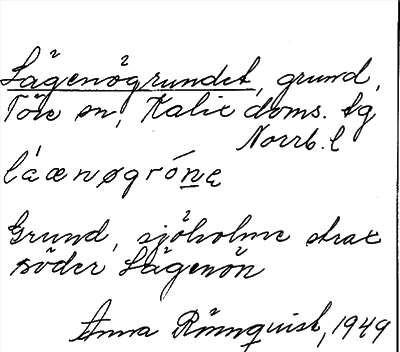 Lägenögrundet, grund,
Töre sn, Kalix doms. tg
Norrb. l
láænøgróne
Grund, sjöholme strax
söder Lägenön
Anna Rönnquist, 1949